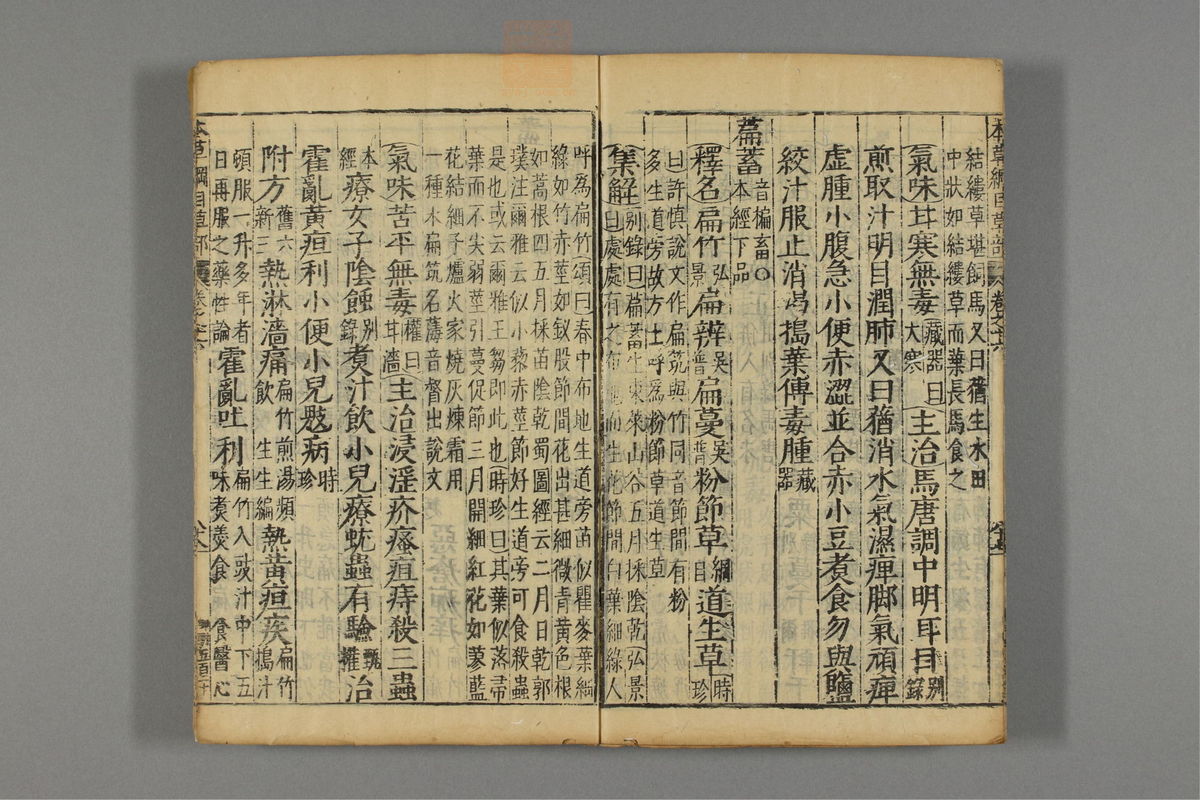 結縷草堪飼馬又曰蕕生水田
中狀如結縷草而葉長馬食之
氣味甘寒無毒藏器曰大寒主治馬唐調中明耳目別錄
煎取汁明目潤肺又曰蕕消水氣濕痺脚氣頑痺
虚腫小腹急小便赤澀並合赤小豆煮食勿與鹽
絞汁服止消渴搗葉傅毒腫藏器
萹蓄音楄畜○本經下品
釋名扁竹弘景扁辨吳普扁蔓吳普粉節草綱目道生草時珍
曰許慎說文作扁筑與竹同音節間有粉
多生道旁故方士呼爲粉節草道生草
集解別錄曰萹蓄生東萊山谷五月採陰乾弘景
曰處處有之布地而生花節間白葉細綠人
呼爲扁竹頌曰春中布地生道旁苗似瞿麥葉細
綠如竹赤莖如釵股節間花出甚細微青黃色根
如蒿根四五月採苗陰乾蜀圖經云二月日乾郭
璞注爾雅云似小藜赤莖節好生道旁可食殺蟲
是也或云爾雅王芻即此也時珍曰其葉似落帚
葉而不尖弱莖引蔓促節三月開細紅花如蓼藍
花結細子爐火家燒灰煉霜用
一種水扁筑名薄音督出說文
氣味苦平無毒權曰甘濇主治浸淫疥瘙疽痔殺三蟲
本經療女子陰蝕別錄煮汁飲小兒療蚘蟲有驗甄權治
霍亂黃疸利小便小兒鬾病時珍
附方舊六新三熱淋濇痛扁竹煎湯頻飲生生編熱黃疸疾扁竹搗汁
頓服一升多年者
日再服之藥性論霍亂吐利扁竹入豉汁中下五味煮羹食食醫心
本草綱目草部
卷之十六
本草綱目草部
卷之十六